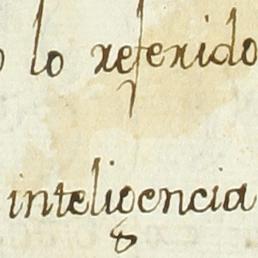 lo referido
inteligencia